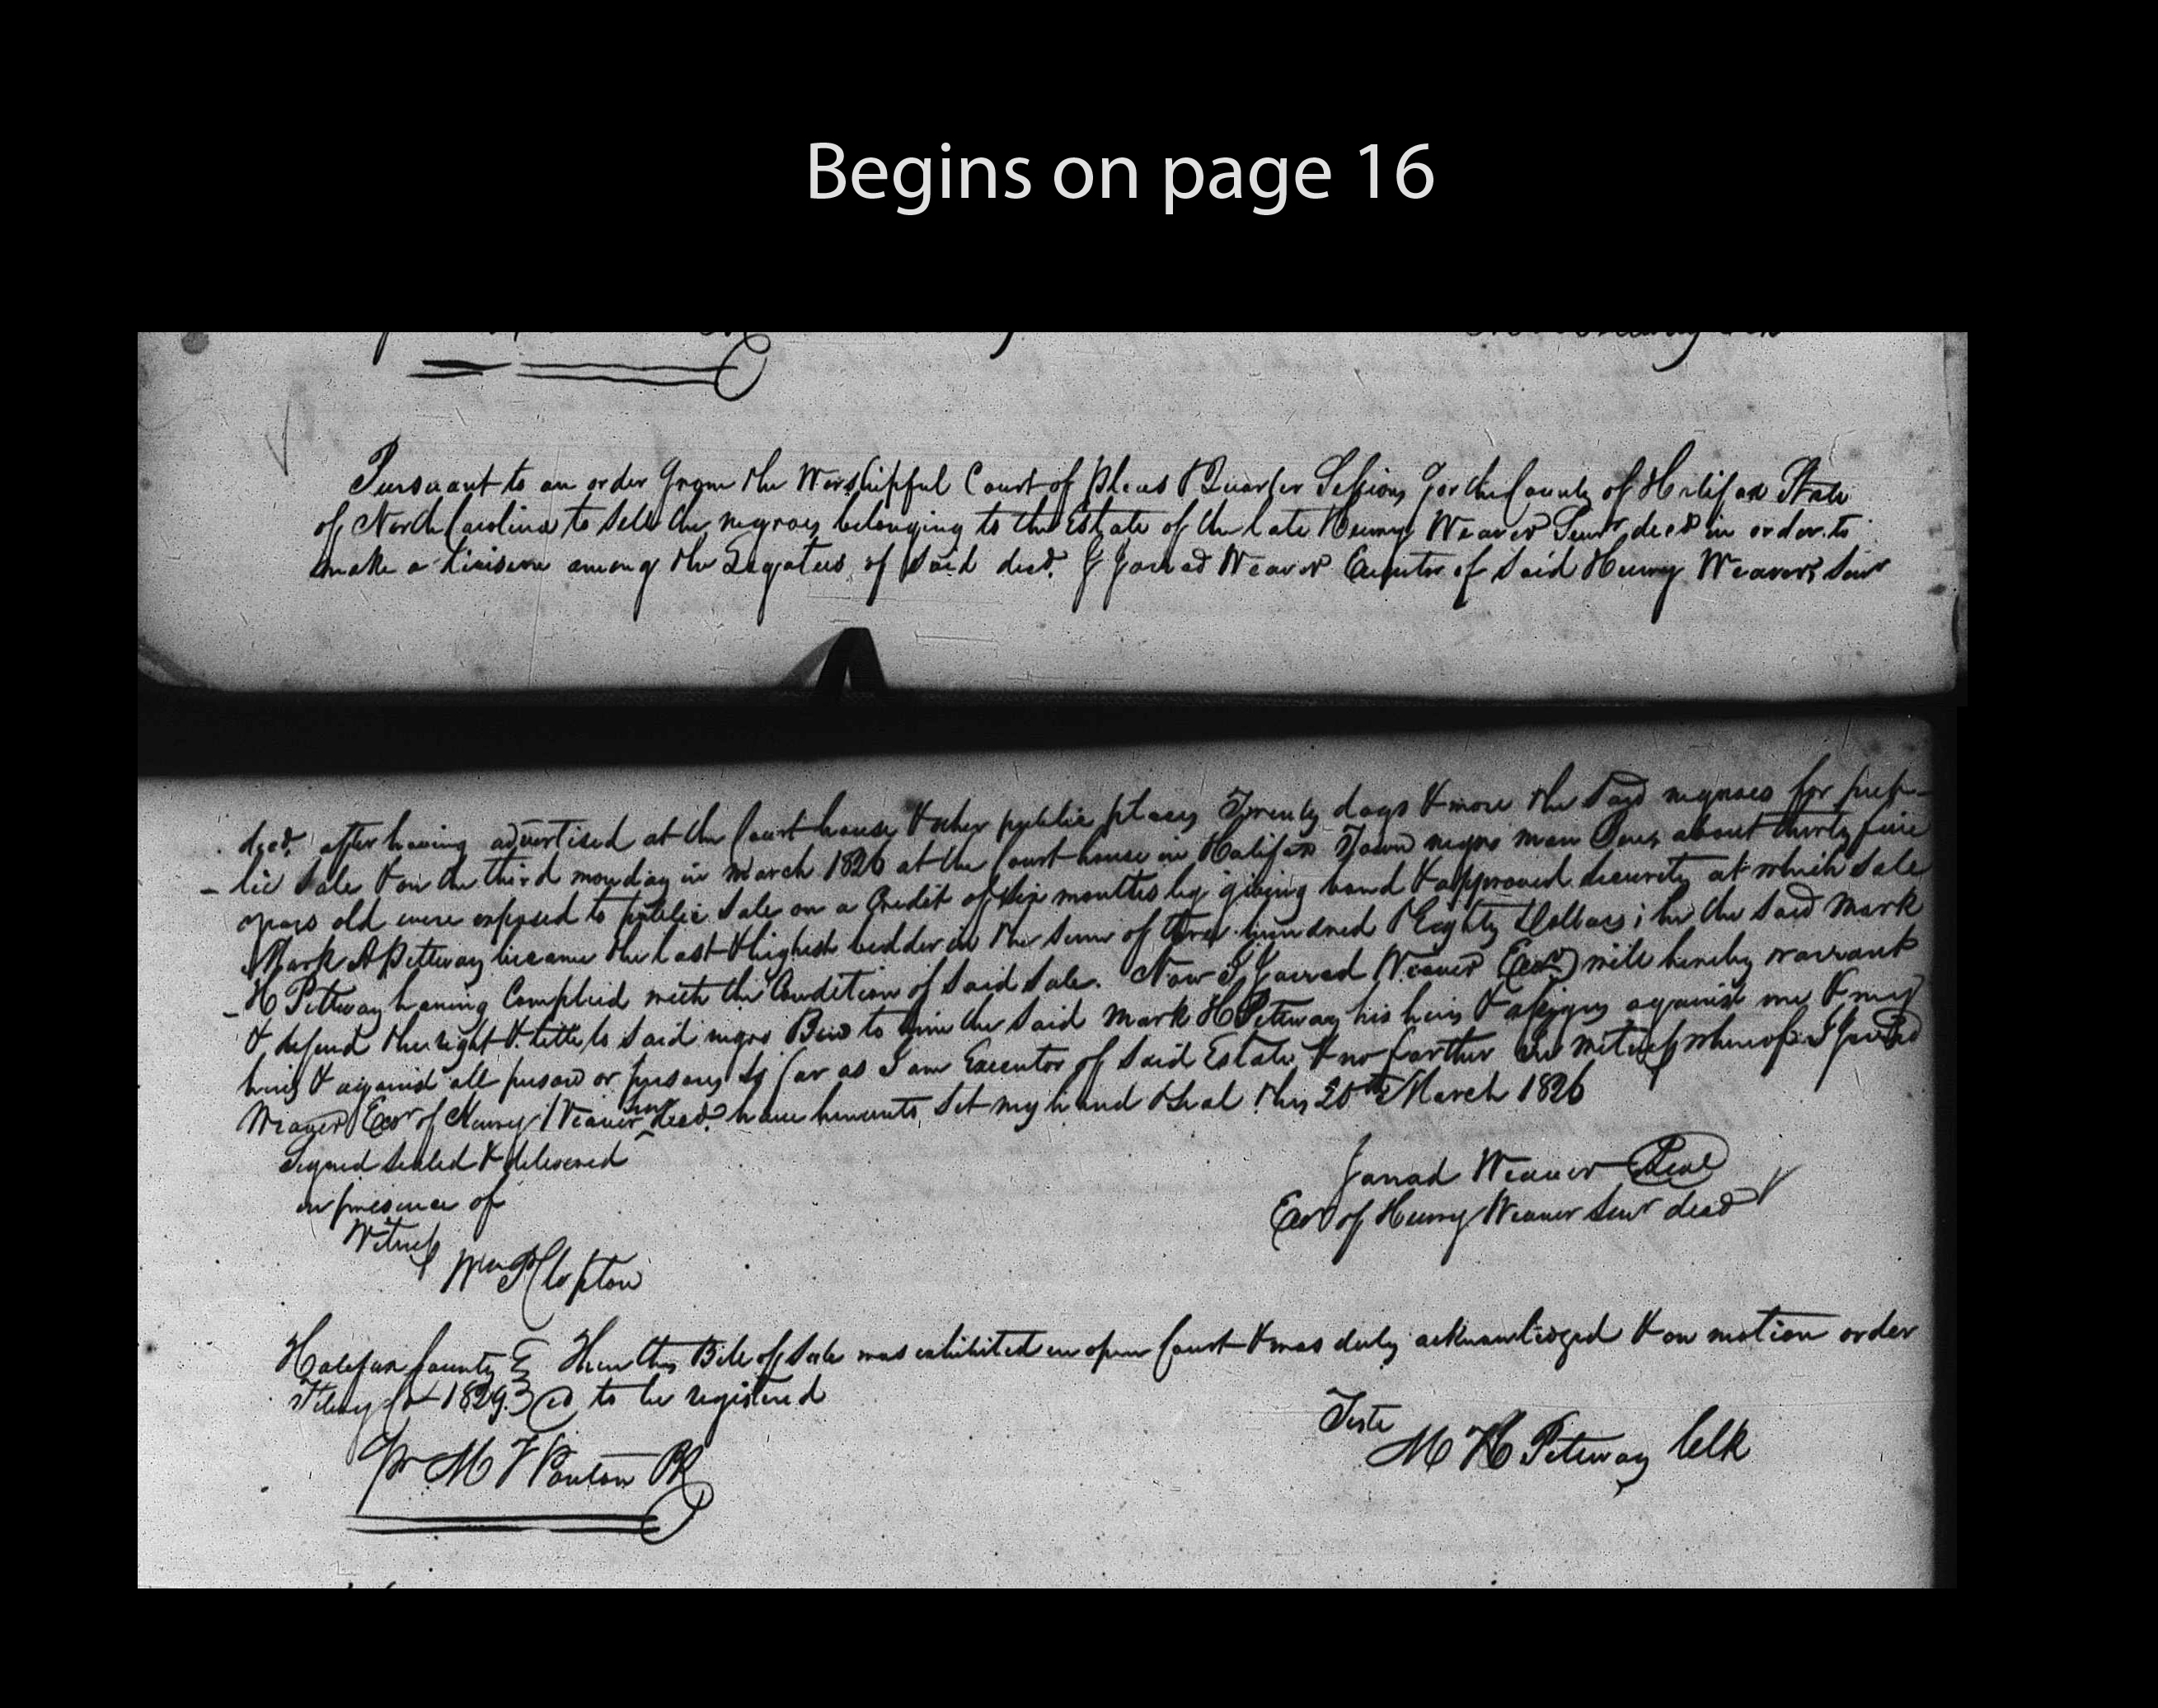 Begins on page 16
Pursuant to an order from the Worshipful Court of Pleas & Quarter Sessions for the County of Halifax State
of North Carolina to sell the negroes belonging to the Estate of the late Henry Weaver Senr decd in order to
make a among the Legatees of said decd. I Jarrad Weaver Executor of said Henry Weaver Senr
decd. after having advertised at the Court house & other public places Twenty days & more the said negroes for pub-
-lic sale & on the third monday in march 1826 at the Court house in Halifax Town negro man about thirty five
years old were exposed to public sale on a Credit of six months by giving bond & approved security at which sale
Mark H Petteway became the last & highest bidder in the sum of hundred & Eighty Dollars; he the said Mark
-H Petteway having Complied with the Condition of said sale. Now I Jarrad Weaver Exor will hereby warrant
& defend the right & title to said negro Ben to him the said Mark H Petteway his heirs & assigns against me & my
heirs & against all person or persons so far as I am Executor of said Estate & no farther In witness whereof I Jarrad
Weaver Exor of Henry Weaver Senr decd. have hereunto set my hand & seal this 20th March 1826
Signed sealed & delivered
in presence of
Jarrad Weaver Seal
Exor of Henry Weaver Senr decd
Witness
Wm Clopton
Halifax County Then this Bill of sale was exhibited in open Court & was duly acknowledged & on motion order
Feby Ct 1829 ed to be registered
Teste
M H Peteway Clk
pr M PR